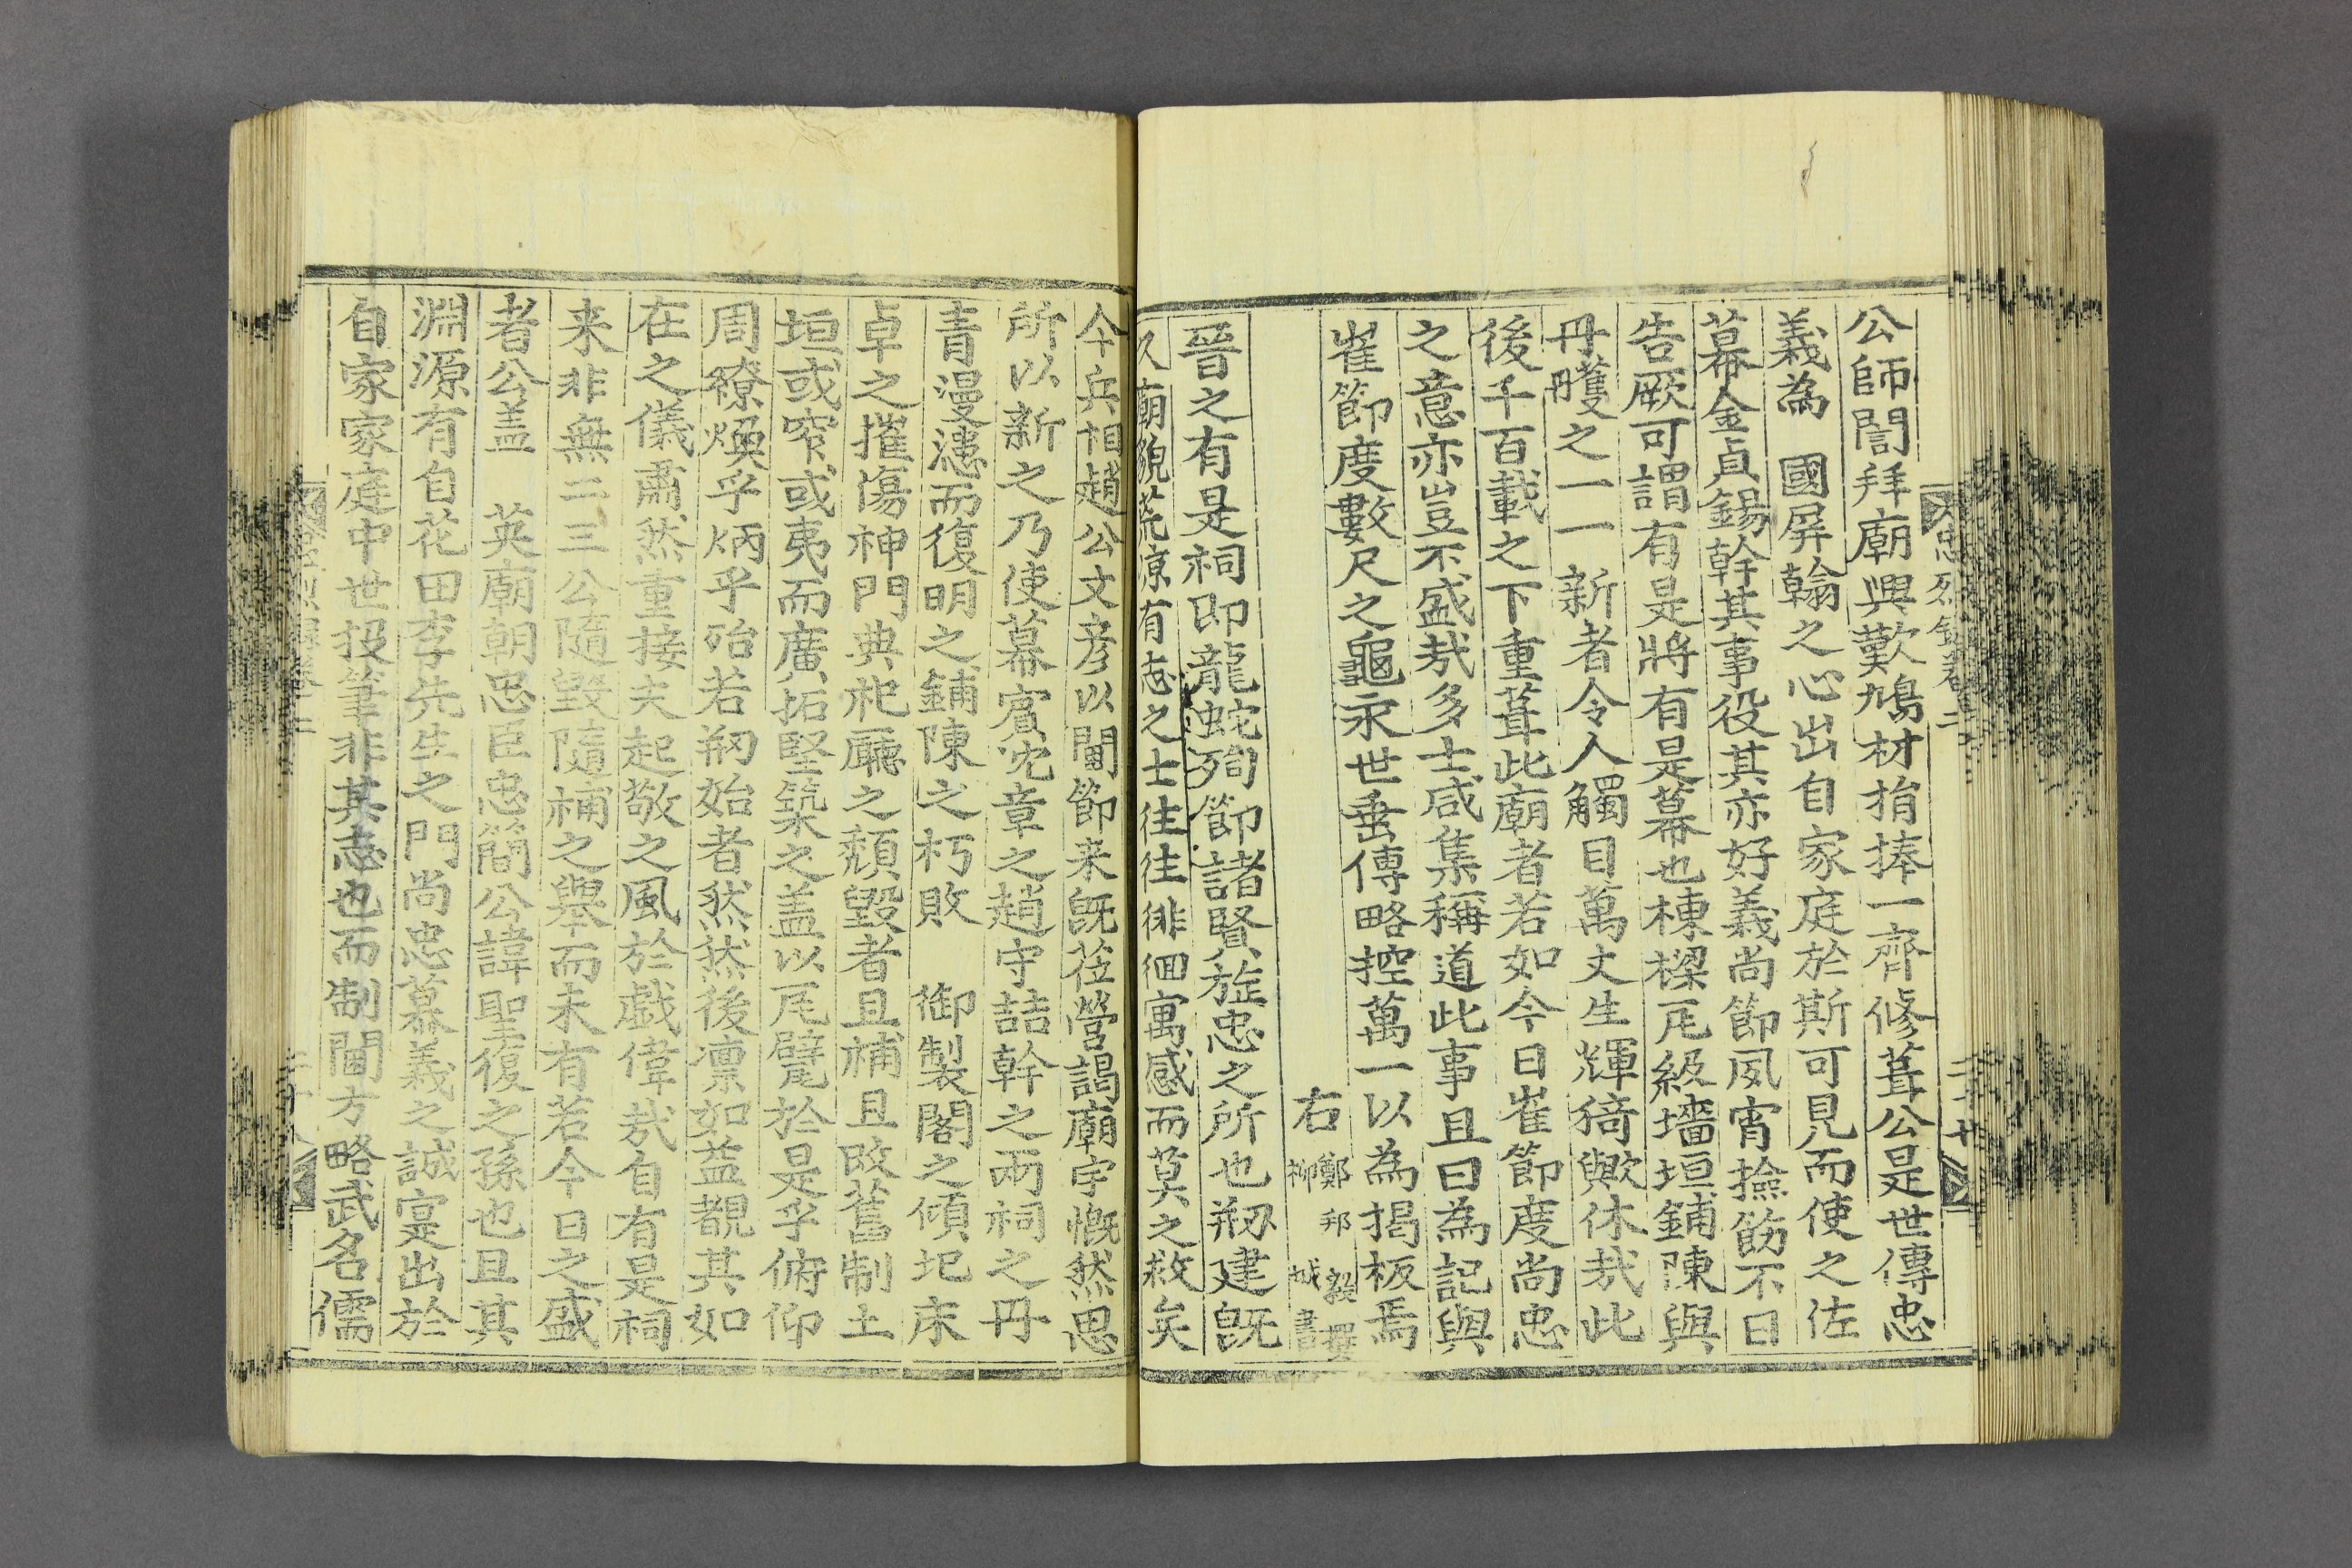 忠烈錄卷二
二十七
公師閫拜廟興歎鳩材捐捧一齊修葺公是世傳忠
義為 國屏翰之心出自家庭於斯可見而使之佐
幕金貞錫幹其事役其亦好義尚節夙宵撿飭不日
告厥可謂有是將有是幕也棟樑瓦級墻垣鋪陳與
丹雘之一一新者令人觸目萬丈生輝猗歟休哉此
後千百載之下重葺此廟者若如今日崔節度尚忠
之意亦豈不盛哉多士咸集稱道此事且曰為記與
崔節度數尺之龜永世垂傳略控萬一以為揭板焉
右 鄭邦毅撰
柳 城書
晉之有是祠即龍蛇殉節諸賢旌忠之所也刱建旣
久廟貌荒凉有志之士往往徘徊寓感而莫之救矣
今兵相趙公文彦以閫節来旣莅營謁廟宇慨然思
所以新之乃使幕賓沈章之趙守喆幹之兩祠之丹
青漫漶而復明之鋪陳之朽敗 御製閣之傾圮床
卓之摧傷神門典祀廳之頹毀者且補且改舊制土
垣或窄或夷而廣拓堅築之盖以瓦甓於是乎俯仰
周繚煥乎炳乎殆若刱始者然然後凛如益覩其如
在之儀肅然重接夫起敬之風於戲偉哉自有是祠
来非無二三公隨毀隨補之擧而未有若今日之盛
者公盖 英廟朝忠臣忠簡公諱聖復之孫也且其
淵源有自花田李先生之門尚忠慕義之誠寔出於
自家家庭中世投筆非其志也而制閫方略武名儒